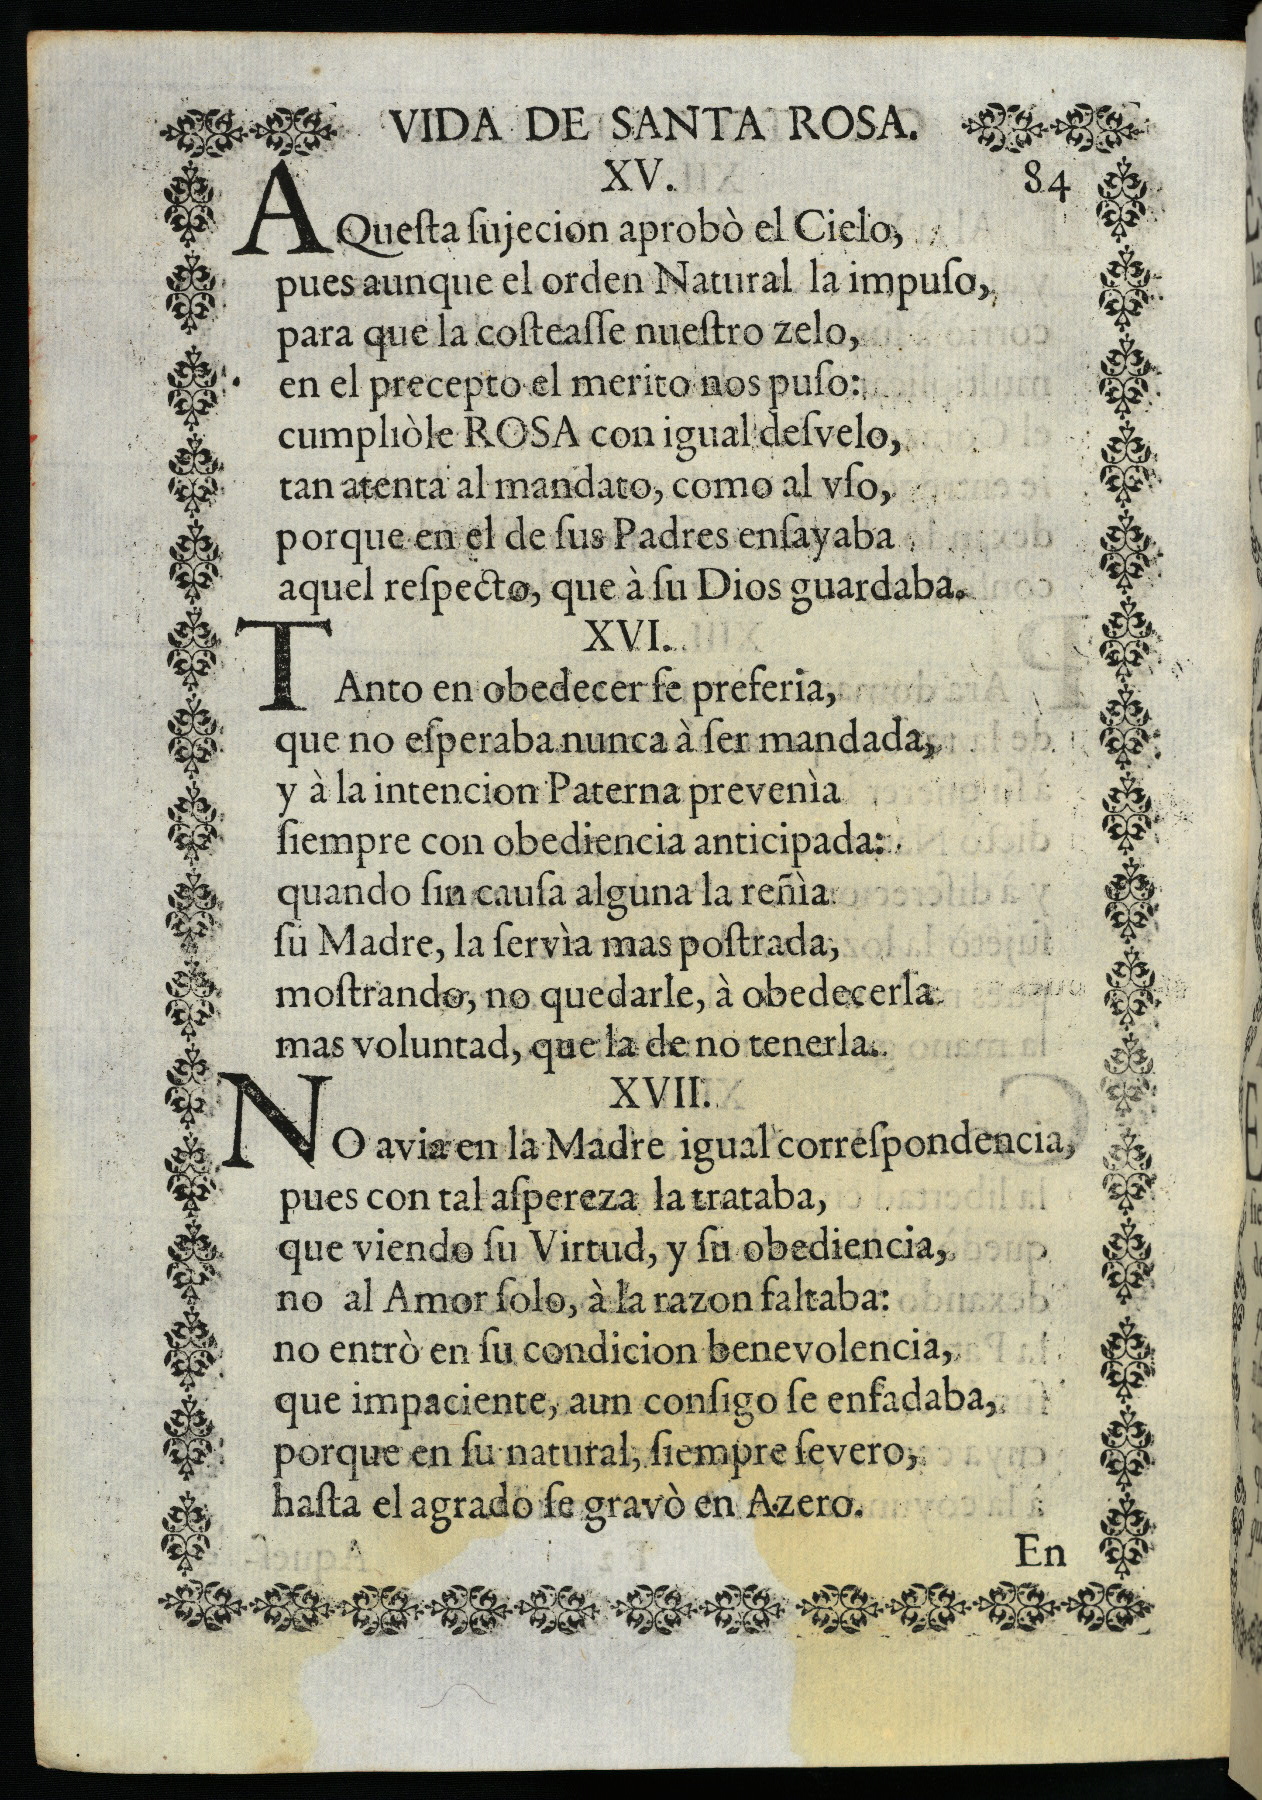 VIDA DE SANTA ROSA.
XV. 84
AQueſta ſujecion aprobò el Cielo,
pues aunque el orden Natural la impuſo,
para que la coſteaſſe nueſtro zelo,
en el precepto el merito nos puſo:
cumpliòle ROSA con igual deſvelo,
tan atenta al mandato, como al vſo,
porque en el de ſus Padres enſayaba
aquel reſpecto, que à ſu Dios guardaba.
XVI.
TAnto en obedecer ſe preferia,
que no eſperaba nunca à ſer mandada,
y à la intencion Paterna prevenìa
ſiempre con obediencia anticipada:
quando ſin cauſa alguna la reñìa
ſu Madre, la ſervìa mas poſtrada,
moſtrando, no quedarle, à obedecerla
mas voluntad, que la de no tenerla.
XVII.
NO avia en la Madre igual correſpondencia,
pues con tal aſpereza la trataba,
que viendo ſu Virtud, y ſu obediencia,
no al Amor ſolo, à la razon faltaba:
no entrò en ſu condicion benevolencia,
que impaciente, aun conſigo ſe enfadaba,
porque en ſu natural, ſiempre ſevero,
haſta el agrado ſe gravò en Azero.
En